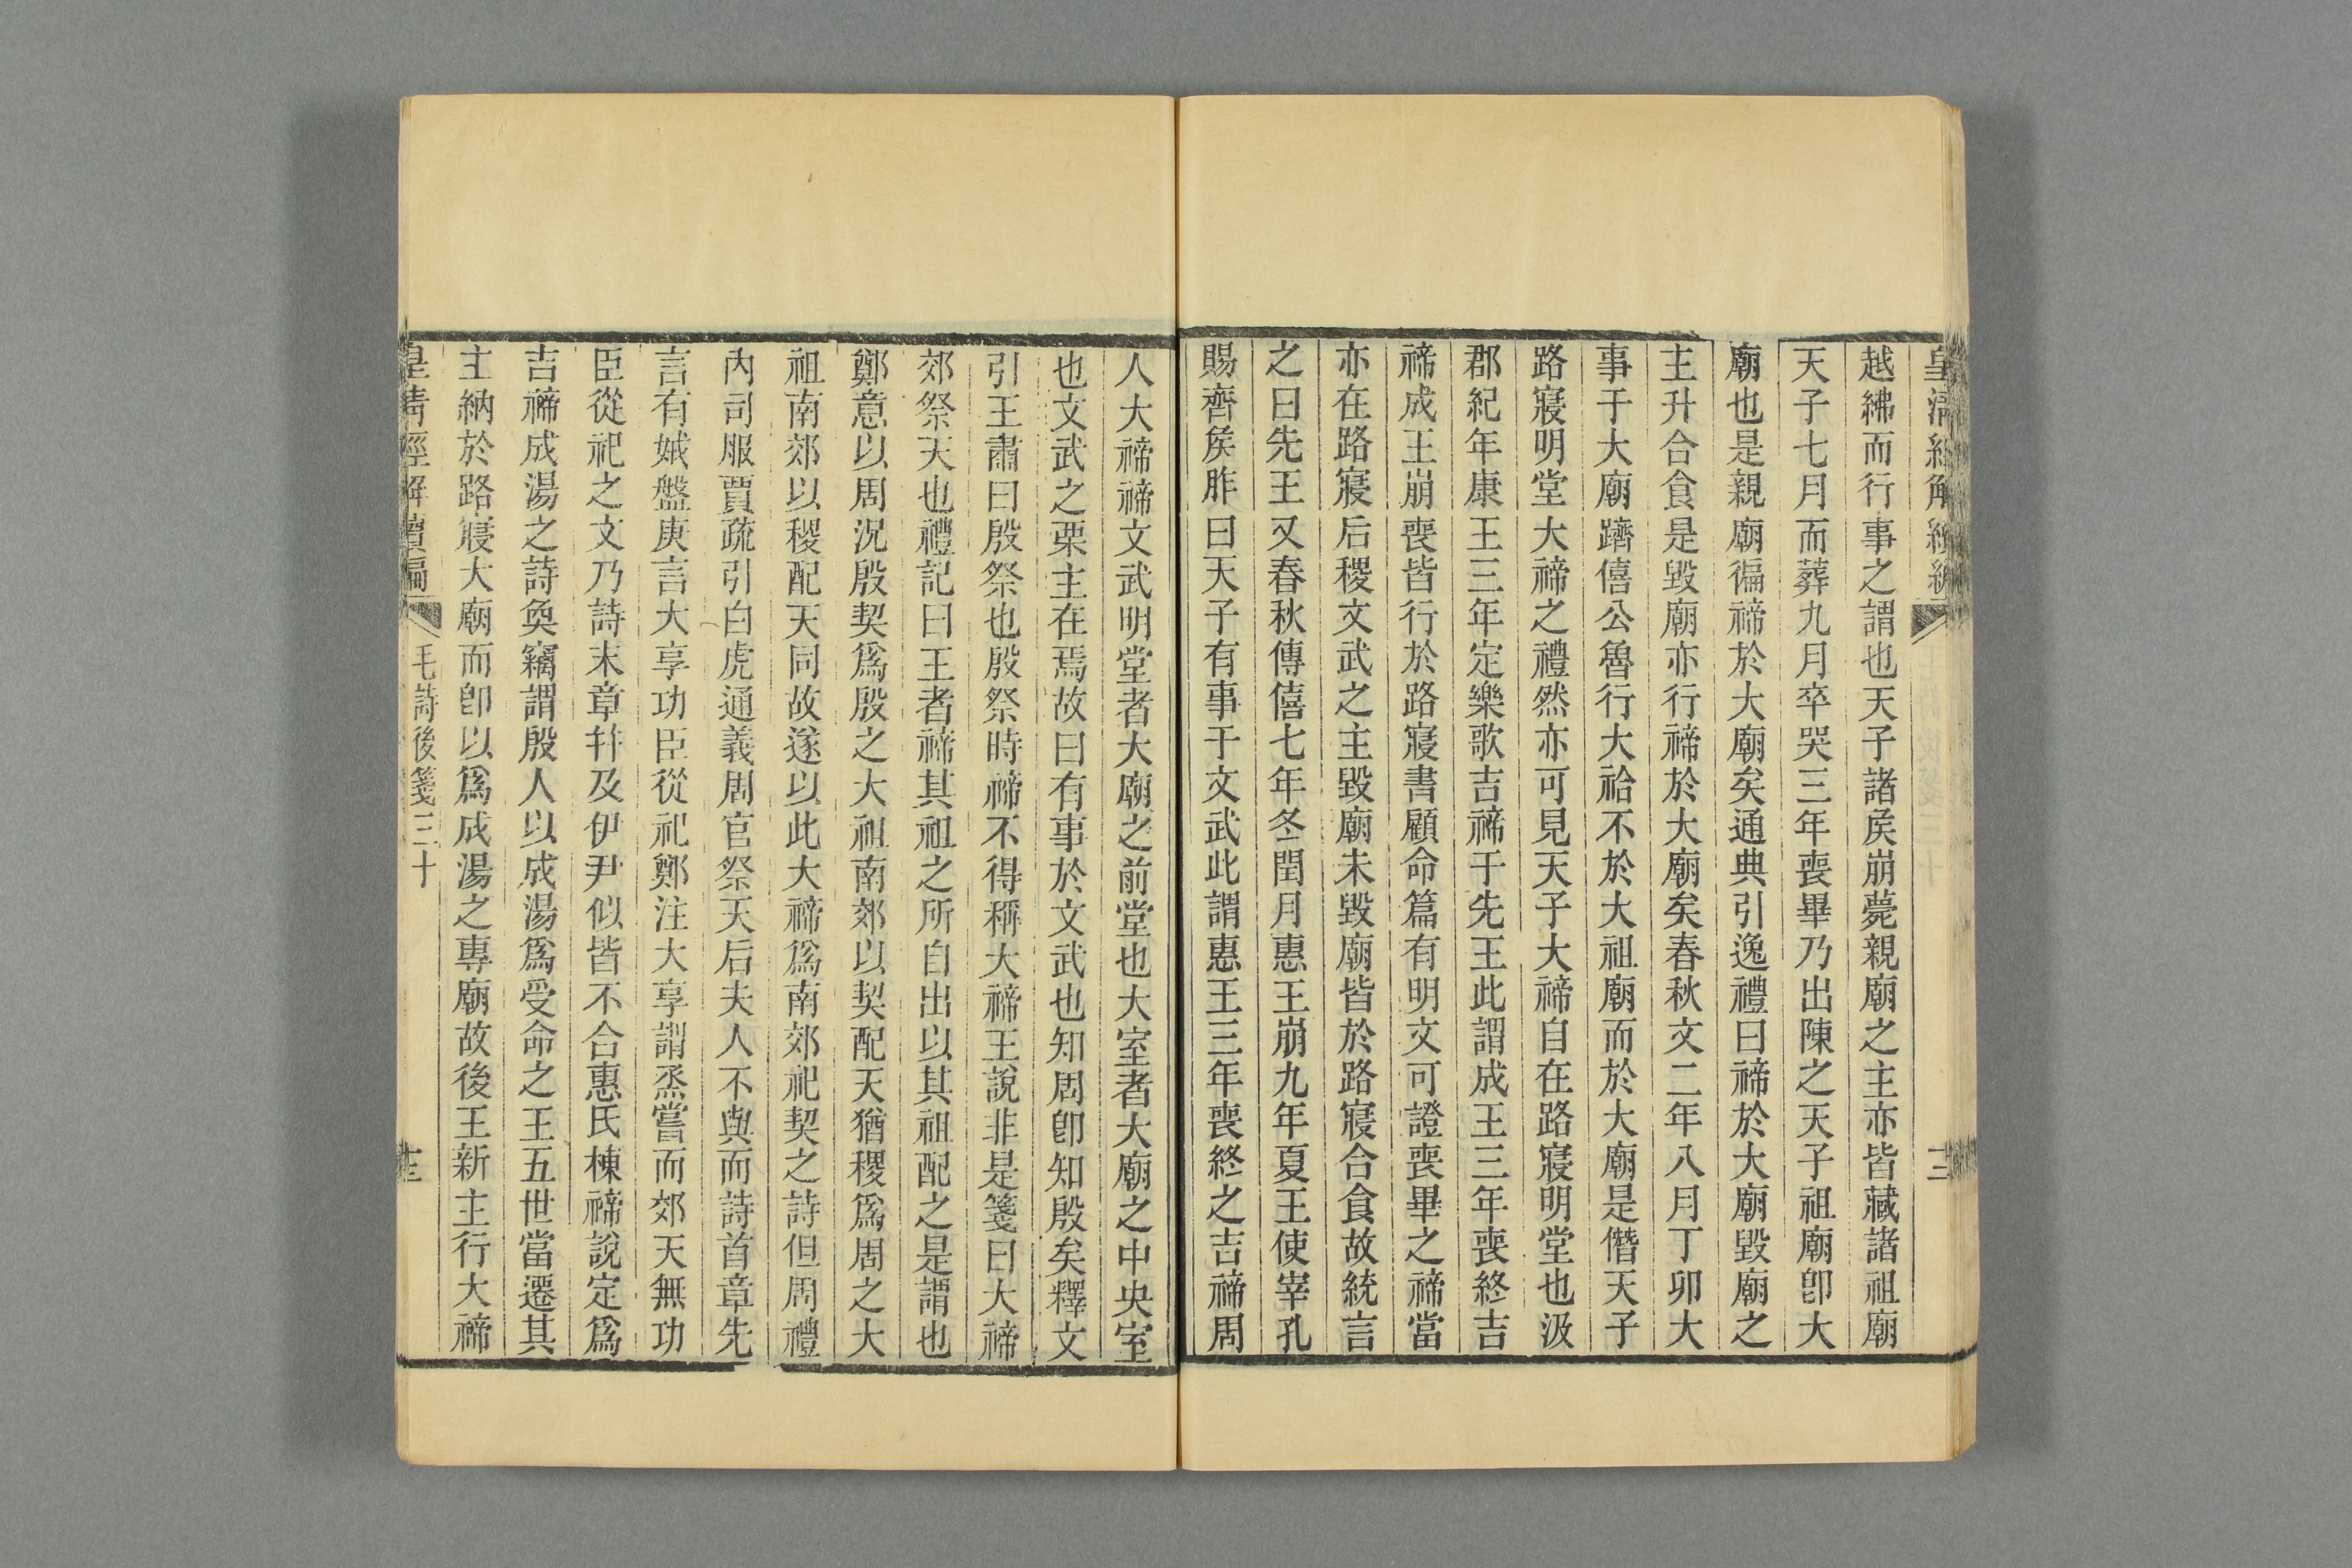 皇清經解續編
十二
越紼而行事之謂也天子諸矦崩薨親廟之主亦皆藏諸祖廟
天子七月而葬九月卒哭三年喪畢乃出陳之天子祖廟卽大
廟也是親廟徧禘於大廟矣通典引逸禮曰禘於大廟毀廟之
主升合食是毀廟亦行禘於大廟矣春秋文二年八月丁卯大
事于大廟躋僖公魯行大祫不於大祖廟而於大廟是僭天子
路寢明堂大禘之禮然亦可見天子大禘自在路寢明堂也汲
郡紀年康王三年定樂歌吉禘于先王此謂成王三年喪終吉
禘成王崩喪皆行於路寢書顧命篇有明文可證喪畢之禘當
亦在路寢后稷文武之主毀廟未毀廟皆於路寢合食故統言
之曰先王又春秋傳僖七年冬閏月惠王崩九年夏王使宰孔
賜齊矦胙曰天子有事于文武此謂惠王三年喪終之吉禘周
人大禘禘文武明堂者大廟之前堂也大室者大廟之中央室
也文武之栗主在焉故曰有事於文武也知周卽知殷矣釋文
引王肅曰殷祭也殷祭時禘不得稱大禘王說非是箋曰大禘
郊祭天也禮記曰王者禘其祖之所自出以其祖配之是謂也
鄭意以周況殷契爲殷之大祖南郊以契配天猶稷爲周之大
祖南郊以稷配天同故遂以此大禘爲南郊祀契之詩但周禮
內司服賈疏引白虎通義周官祭天后夫人不與而詩首章先
言有娀盤庚言大享功臣從祀鄭注大享謂烝嘗而郊天無功
臣從祀之文乃詩末章幷及伊尹似皆不合惠氏棟禘說定爲
吉禘成湯之詩奐竊謂殷人以成湯爲受命之王五世當遷其
主納於路寢大廟而卽以爲成湯之專廟故後王新主行大禘
皇清經解續編
毛詩後箋三十
十三